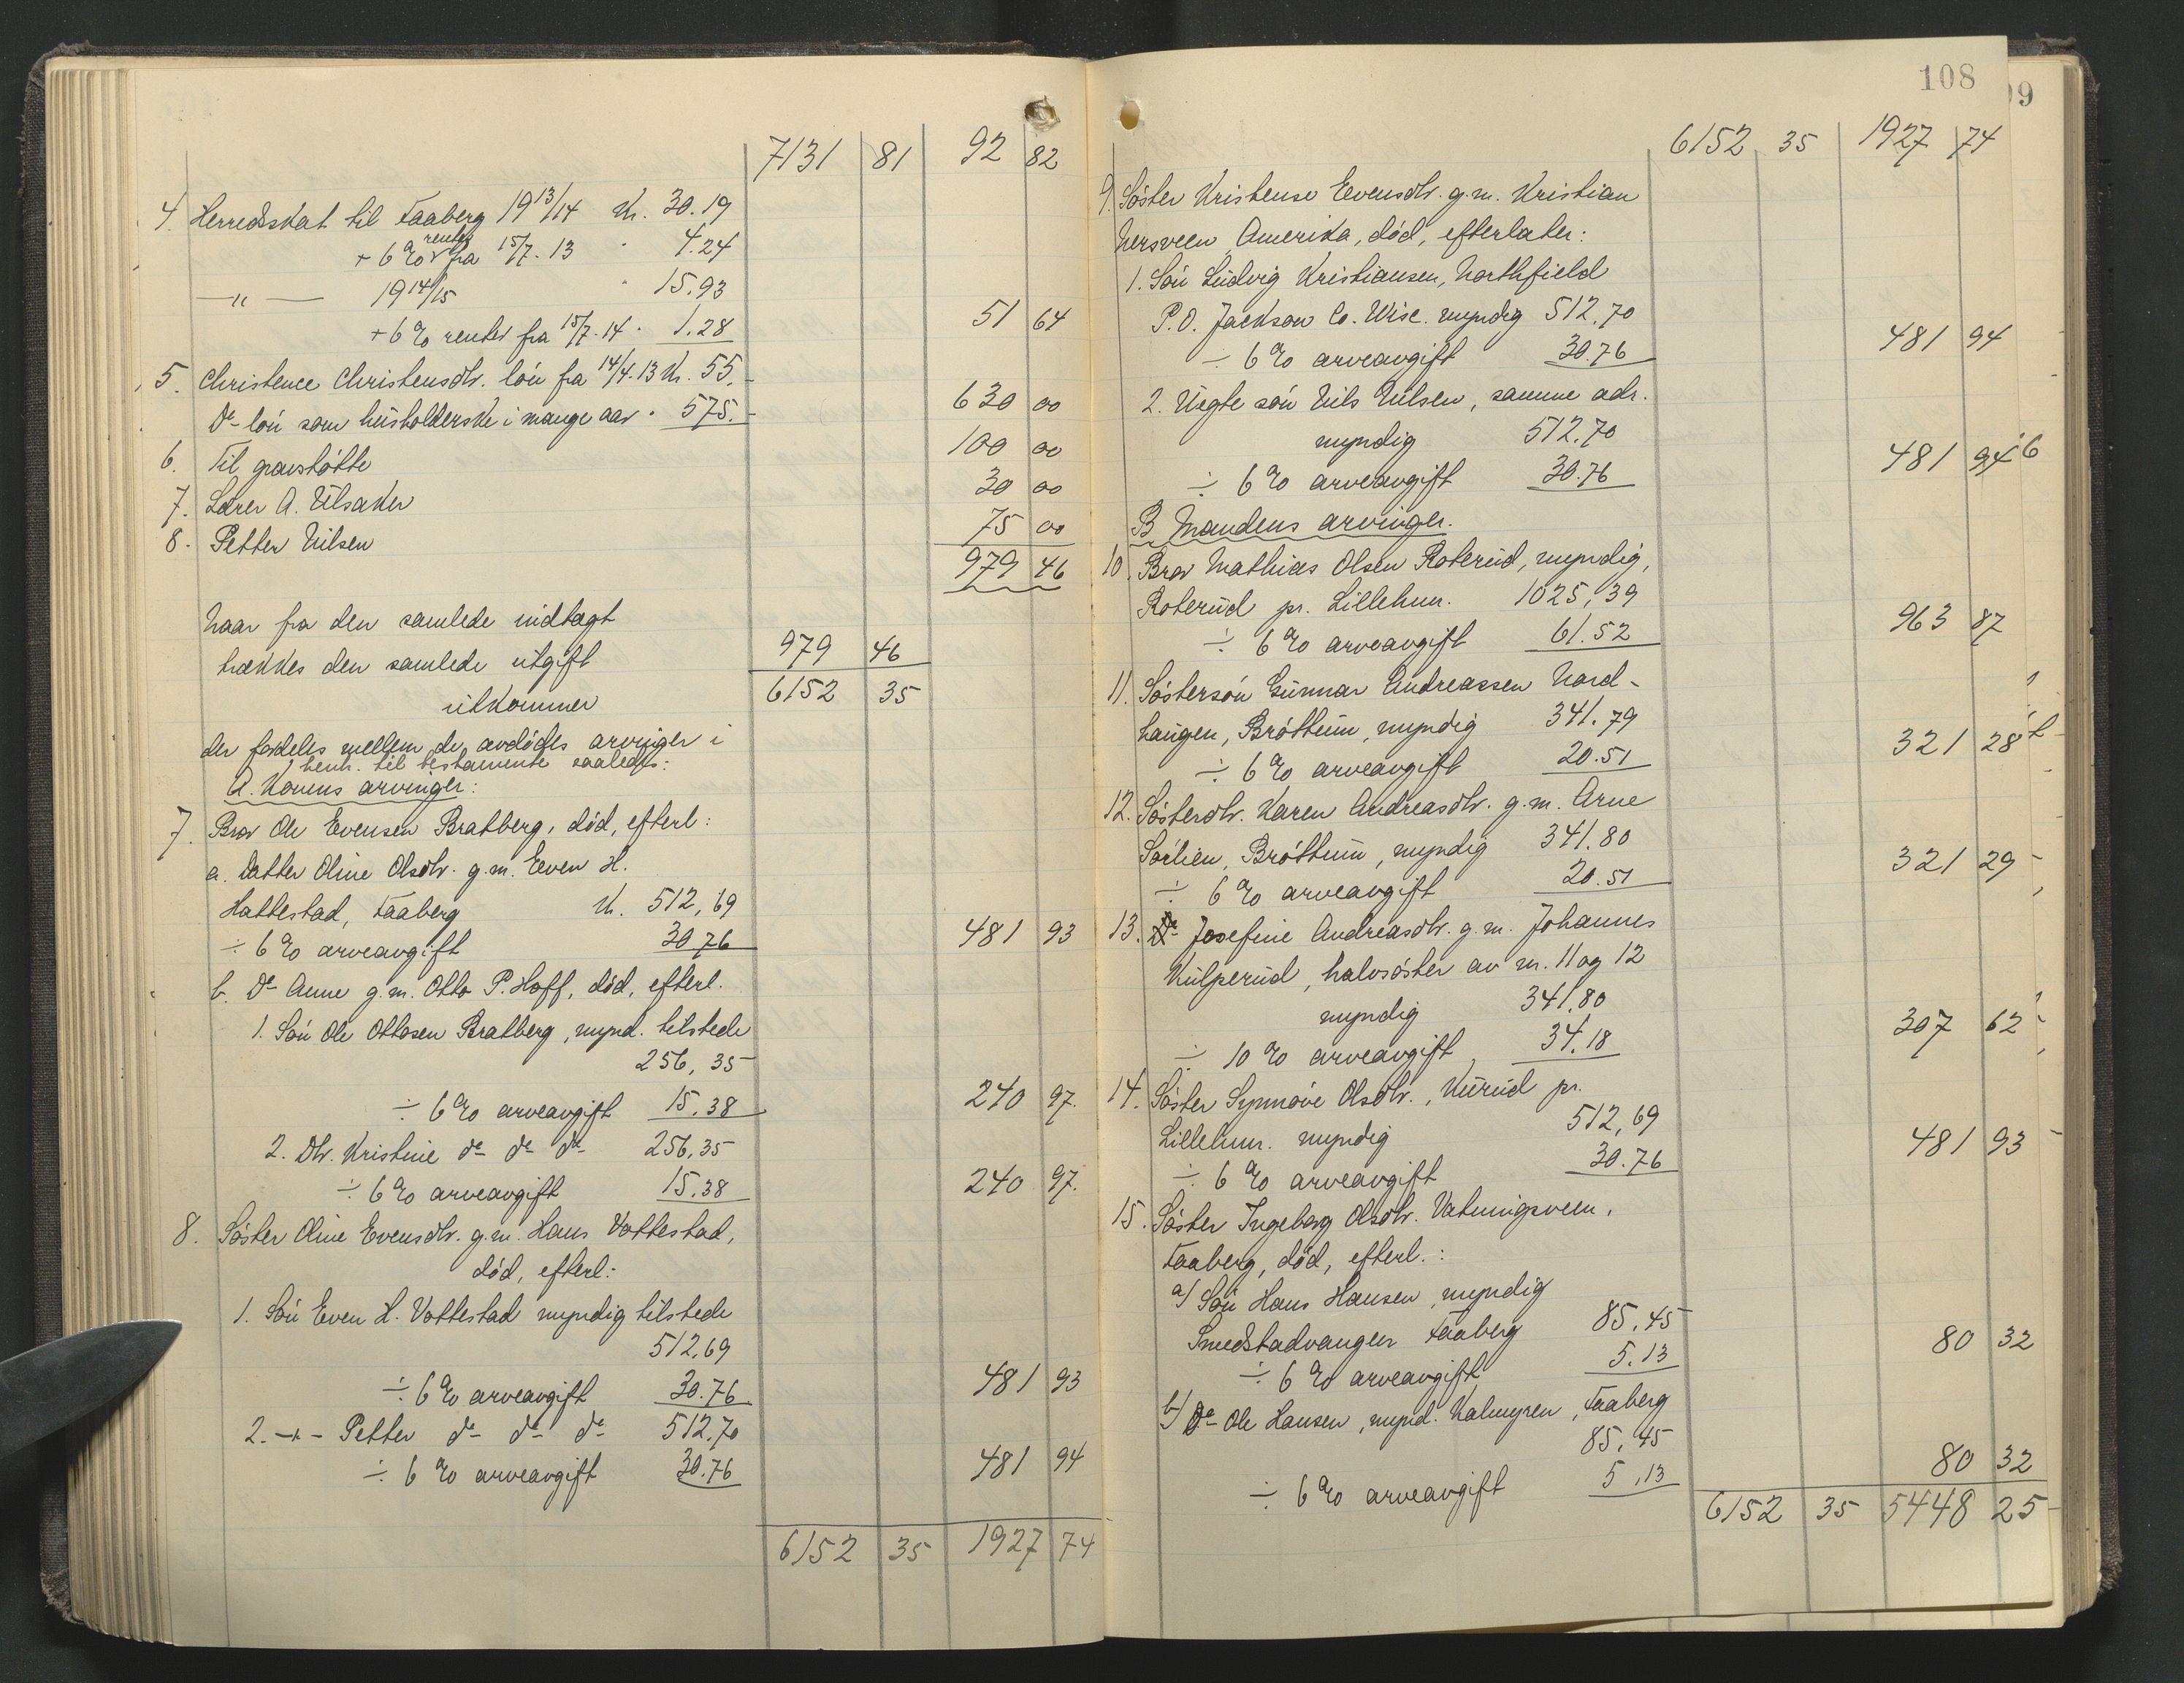 7131 | 81 | 92 | 82
4. Herredskat til Faaberg 19 13/14 Kr. 30.19
+ 6 % renter fra 15/7.13 " 4.24
—"— 19 14/15 " 15.93
+ 6 % renter fra 15/7.14 " 1.28 | 51 | 64
5. Christence Christensdtr. løn fra 14/4.13 Kr. 55.-
De løn som husholderske i mange aar " 575.- | 630 | 00
6. Til gravstøtte | 100 | 00
7. Lærer A. Ulsaker | 30 | 00
8. Petter Nilsen | 75 | 00
979 | 46
Naar fra den samlede indtægt
trækkes den samlede utgift 979 | 46
utkommer 6152 | 35
der fordeles mellem de avdødes arvinger i
henh. til testamente saaledes:
A. Konens arvinger:
7. Bror Ole Evensen Bratberg, død, efterl:
a. Datter Oline Olsdtr. g.m. Even H.
Hattestad, Faaberg Kr. 512,69
÷ 6 % arveavgift 30.76 | 481 | 93
b. De Anne g.m. Otto P. Hoff, død, efterl.
1. Søn Ole Ottosen Bratberg, mynd. tilstede
256,35
÷ 6 % arveavgift 15.38 | 240 | 97.
2. Dtr. Kristine de de de 256,35
÷ 6 % arveavgift 15.38 | 240 | 97.
8. Søster Oline Evensdtr. g.m. Hans Vattestad,
død, efterl:
1. Søn Even H. Vattestad myndig tilstede
512.69
÷ 6 % arveavgift 30.76 | 481 | 93
2. -"- Petter de de de 512.70
÷ 6 % arveavgift 30.76 | 481 | 94
6152 | 35 | 1927 | 74
108
99
6152 | 35 | 1927 | 74
9. Søster Kristense Evensdtr. g.m. Kristian
Nersveen Amerika, død, efterlater:
1. Søn Ludvig Kristiansen, Northfield
P.O. Jackson Co. Wisc. myndig 512.70
÷ 6 % arveavgift 30.76 | 481 | 94
2. Uegte søn Nils Nilsen, samme adr.
myndig 512.70
÷ 6 % arveavgift 30.76 | 481 | 94 6
B Mandens arvinger.
10. Bror Mathias Olsen Roterud, myndig,
Roterud pr. Lillehm. 1025,39
÷ 6 % arveavgift 61.52 | 963 | 87
11. Søstersøn Gunnar Andreassen Nord-
haugen, Brøttum, myndig 341.79
÷ 6 % arveavgift 20.51 | 321 | 28
12. Søsterdtr. Karen Andreasdtr. g.m. Arne
Sørlien, Brøttum, myndig 341.80
÷ 6 % arveavgift 20.51 | 321 | 29
13. De Josefine Andreasdtr. g.m. Johannes
Kulperud, halvsøster av nr. 11 og 12
myndig 341.80
÷ 10 % arveavgift 34.18 | 307 | 62
14. Søster Synnøve Olsdtr., Kurud pr.
Lillehm. myndig 512,69
÷ 6 % arveavgift 30.76 | 481 | 93
15. Søster Ingeborg Olsdtr. Vatningsveen,
Faaberg, død, efterl.:
a) Søn Hans Hansen, myndig
Smedstadvangen Faaberg 85.45
÷ 6 % arveavgift 5.13 | 80 | 32
b) De Ole Hansen, mynd. Kalmyren, Faaberg
85.45
÷ 6 % arveavgift 5,13 | 80 | 32
6152 | 35 | 5448 | 25